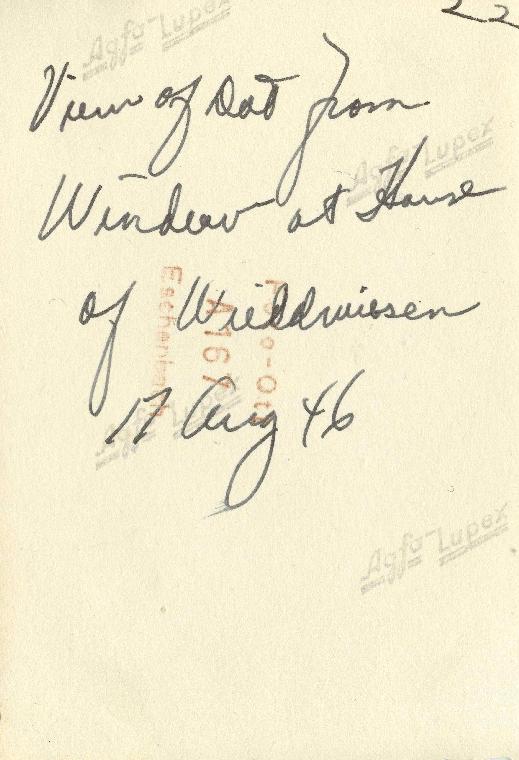 22
View of Dat from
Window at House
of Wieldwiesen
17 Aug 46
Photo-Ott
A 167
Eschenbach
Agfa-Lupex
Agfa-Lupex
Agfa-Lupex
Agfa-Lupex